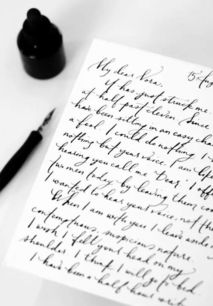 15 Aug
My dear Vera,
It has just struck me
at half past eleven. Since
have been sitting in an easy chair
a fool. I could do nothing
nothing but your voice. I am
hearing you call me 'Dear'. I
two men today, by leaving them,
I wanted to hear your voice, not
When I am with you I have
contemptuous, suspicious nature.
I wish I felt your head on my
shoulder. I think I will go to bed.
I have been a half-hour